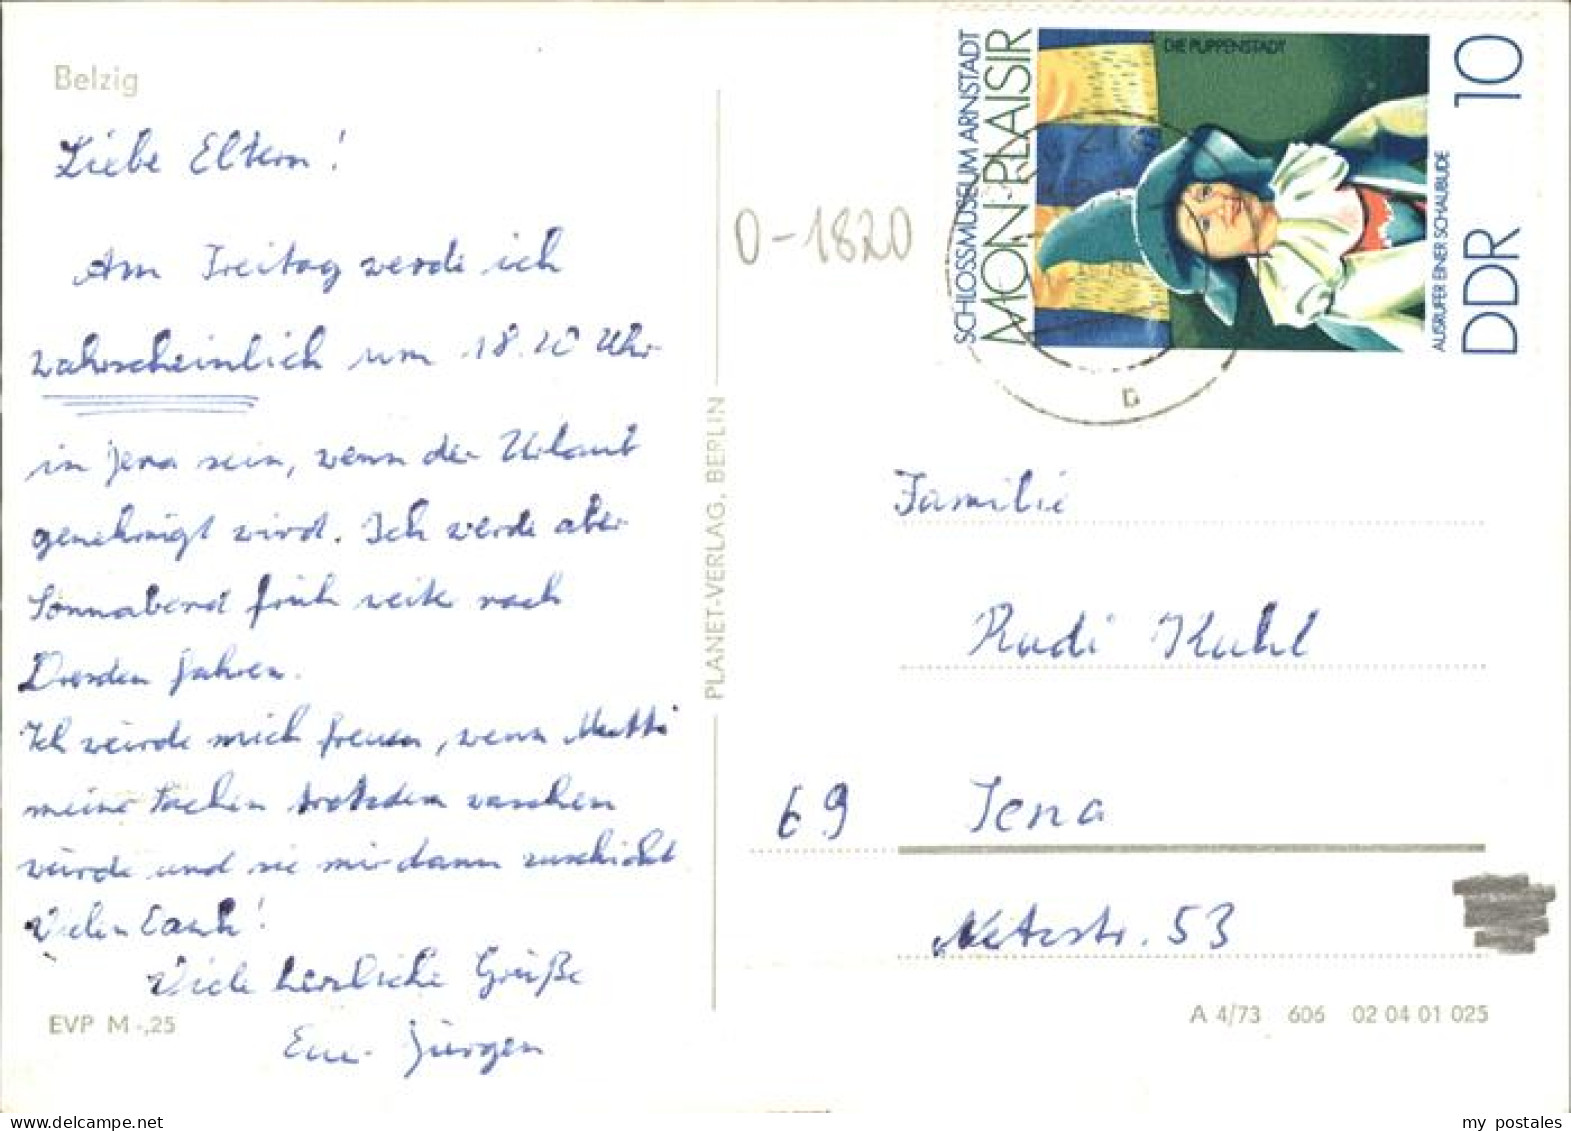 Belzig
Liebe Eltern!
Am Freitag werde ich
wahrscheinlich um 18.20 Uhr
in Jena sein, wenn der Urlaub
genehmigt wird. Ich werde aber
Sonnabend früh weiter nach
Dresden fahren.
Ich würde mich freuen, wenn Mutti
meine Sachen trotzdem waschen
würde und sie mir dann zuschickt.
Vielen Dank!
Viele herzliche Grüße
Euer Jürgen
EVP M -,25
PLANET-VERLAG, BERLIN
0-1820
SCHLOSSMUSEUM ARNSTADT
MON PLAISIR
DIE PUPPENSTADT
AUSRUFER EINER SCHAUBUDE
DDR 10
Familie
Rudi Kuhl
69 Jena
Netzstr. 53
A 4/73 606 02 04 01 025
my_postales
www.delcampe.net